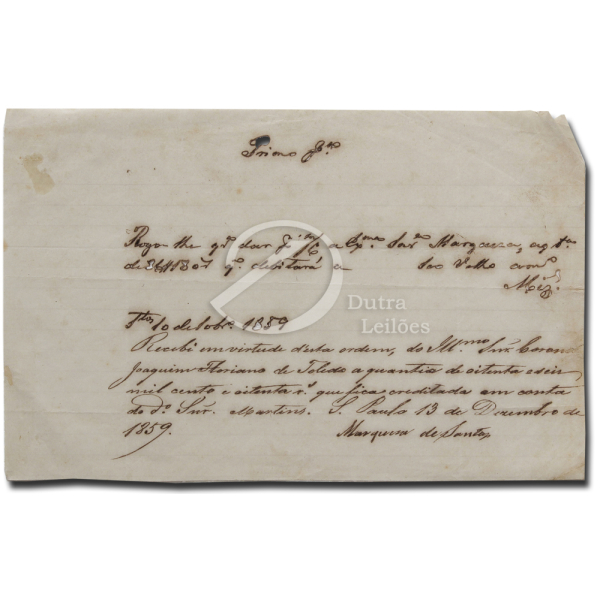 Primo
Rogo-lhe q.^e dar a Ex.^ma Sn.^ra Marqueza, a q.^tia
de 86$180 r.^s q.^e debitará a seo Velho am.^o
Dutra
Leilões
10 de 1859
Recebi em virtude desta ordem, do Ill.^mo Snr. Coronel
Joaquim Floriano de Toledo a quantia de oitenta e seis
mil cento e oitenta r.^s que fica creditada em conta
do d.^o Snr. Martins. S. Paulo 13 de Dezembro de
1859. Marqueza de Santos